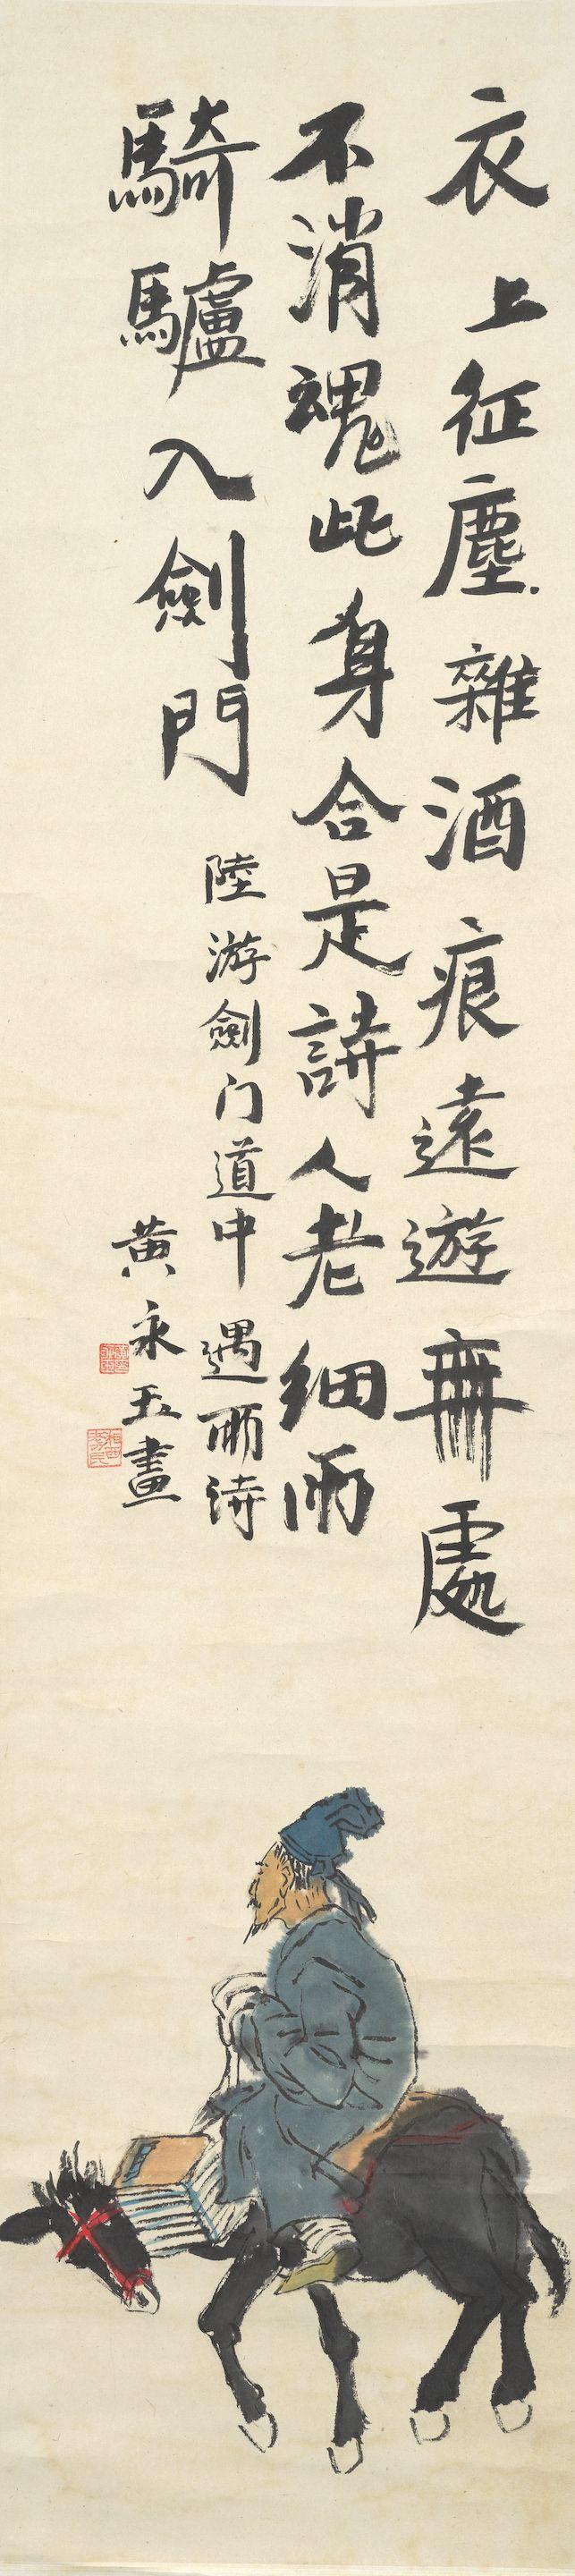 衣上征塵雜酒痕遠遊無處
不消魂此身合是詩人老細雨
騎驢入劍門
陸游劍门道中遇雨詩
黄永玉畫